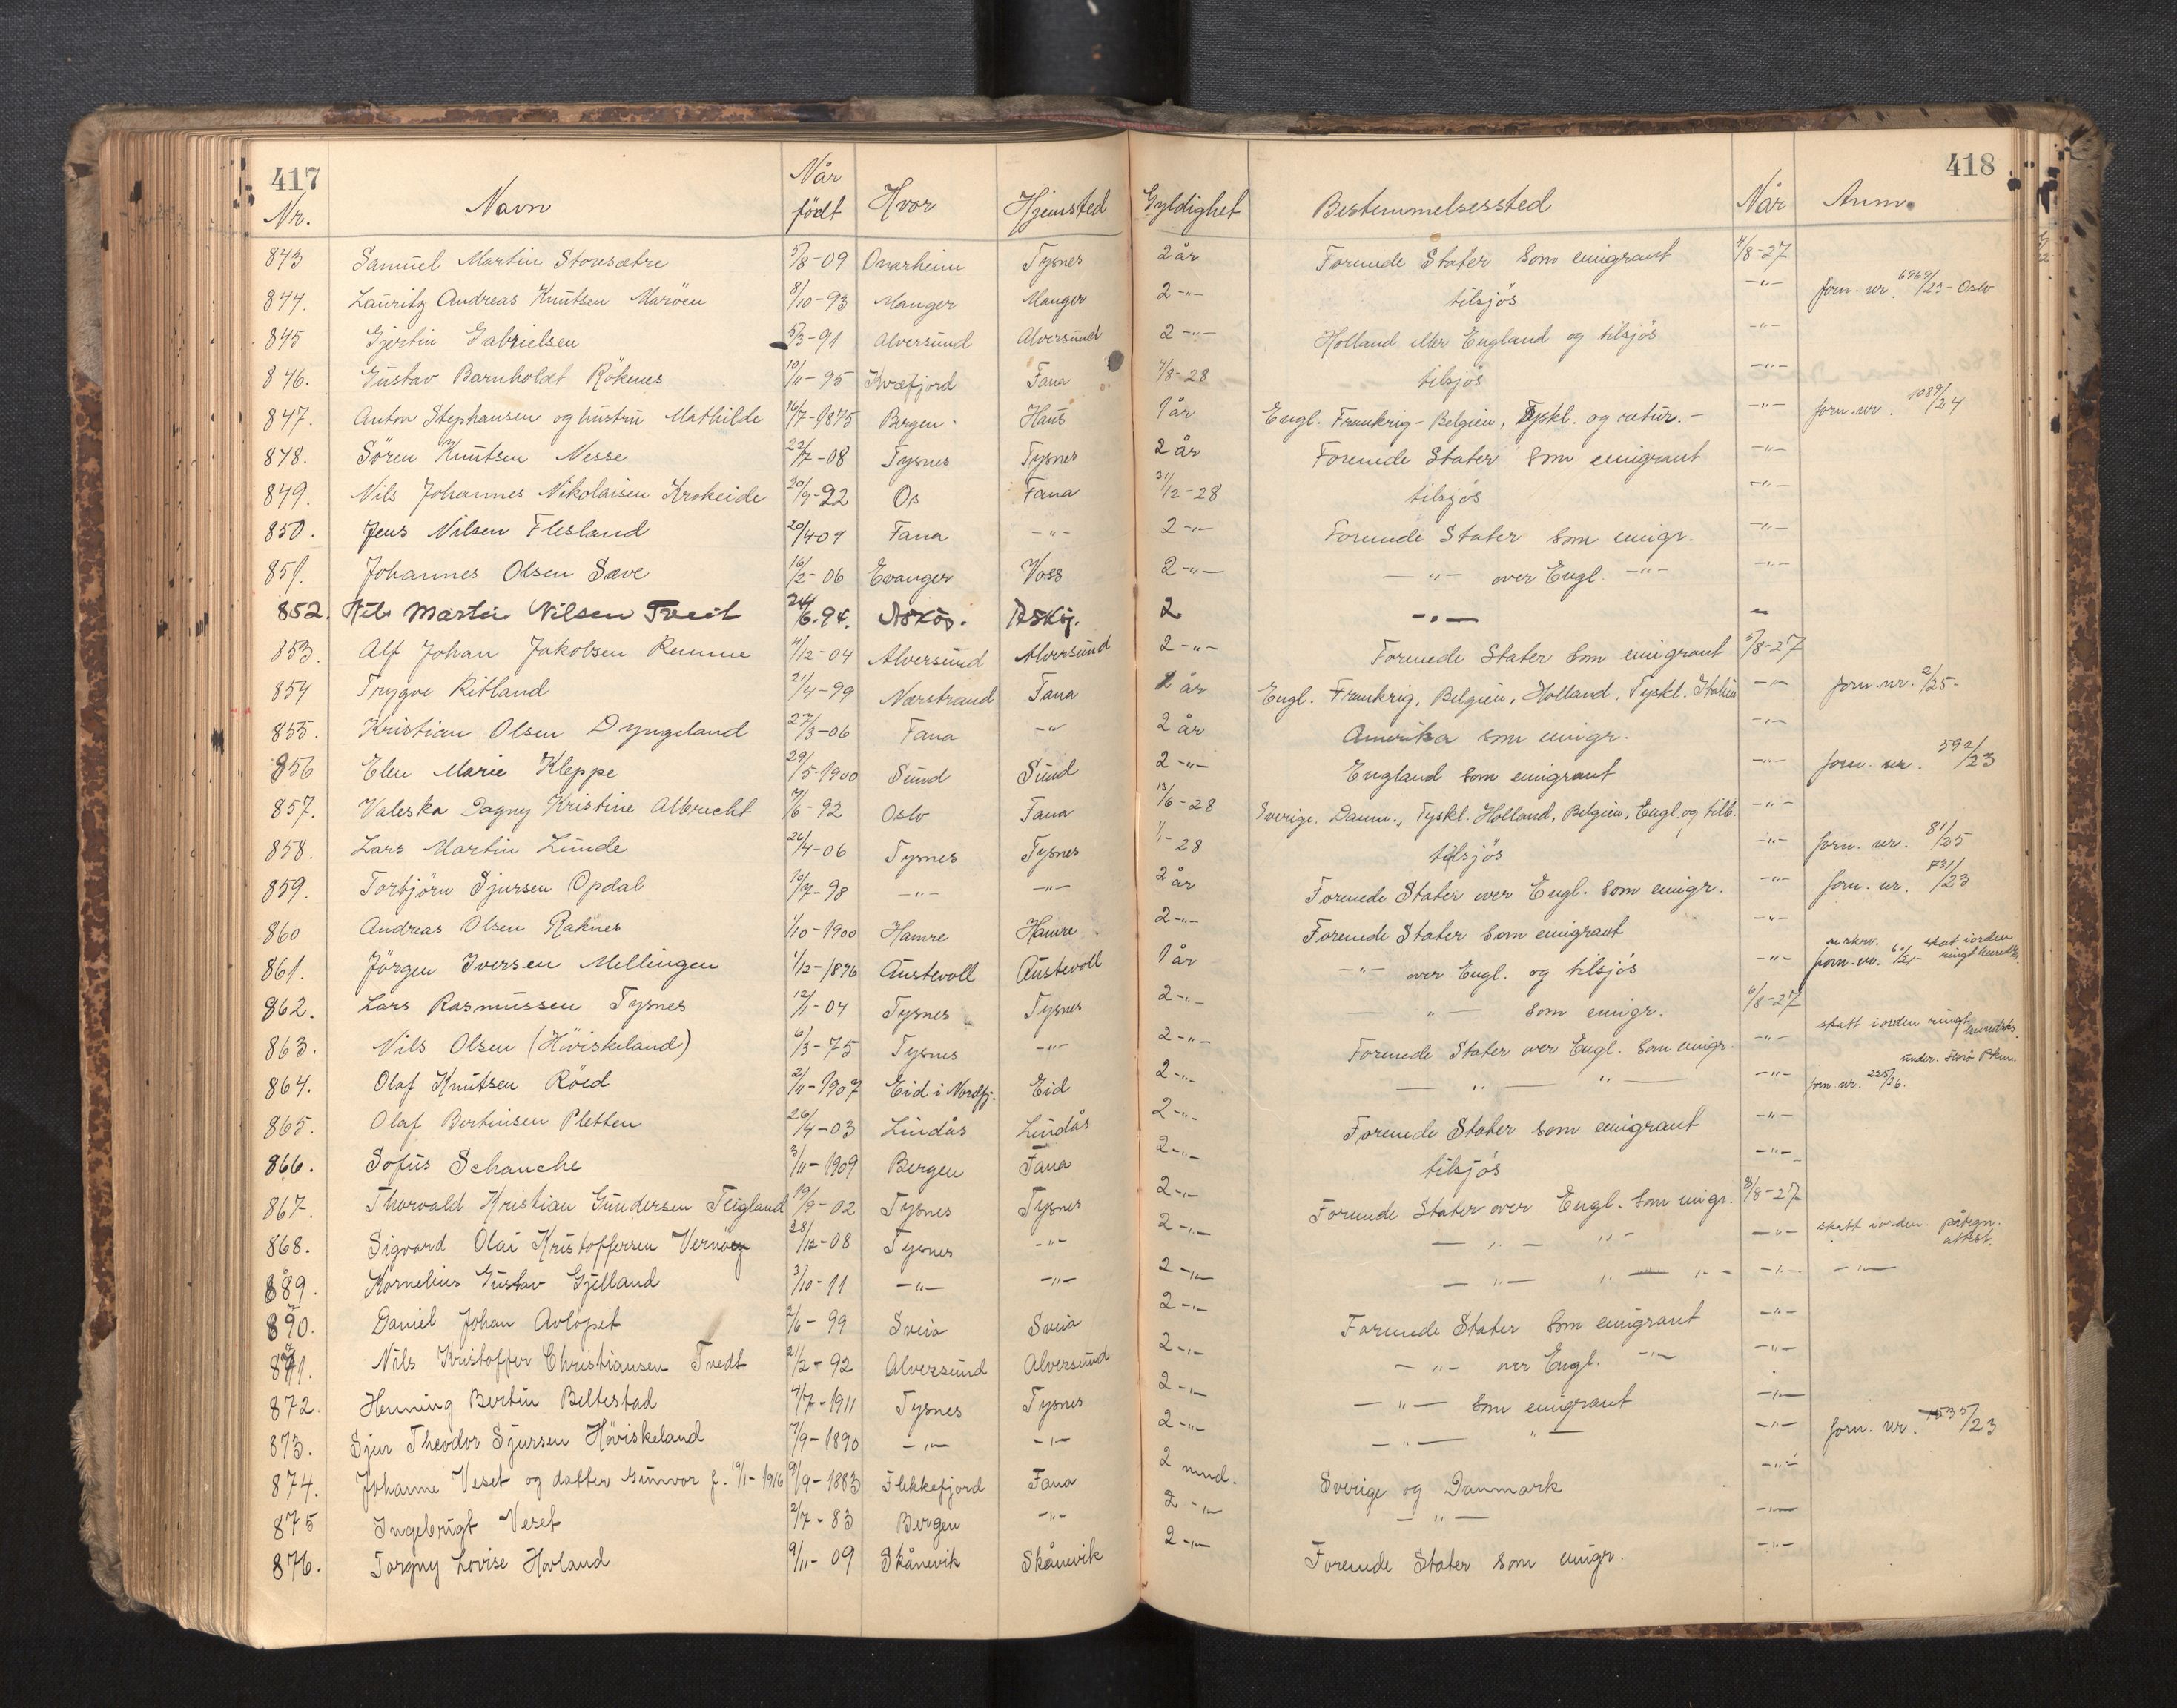 417 418
Nr. Navn Når født Hvor Hjemsted Gyldighet Bestemmelsessted Når Anm.
843 Samuel Martin Storesætre 5/8-09 Onarheim Tysnes 2 år Forenede Stater som emigrant 4/8-27
844. Lauritz Andreas Knutsen Maröen 8/10-93 Manger Manger 2-"- tilsjös -"- forn. nr. 6969/23-Oslo
845 Gjertin Gabrielsen 5/3-91 Alversund Alversund 2-"- Holland eller England og tilsjös -"-
846. Gustav Barnholdt Rökenes 10/11-95 Kvæfjord Fana 4/8-28 tilsjös -"-
847. Anton Stephansen og hustru Mathilde 16/7-1875 Bergen. Haus 1 år Engl. Frankrig-Belgien, Tyskl. og retur.- -"- forn. nr. 1089/24
848. Sören Knutsen Nesse 22/7-08 Tysnes Tysnes 2 år Forenede Stater som emigrant -"-
849. Nils Johannes Nikolaisen Krokeide 20/9-92 Os Fana 31/12-28 tilsjös -"-
850. Jens Nilsen Flesland 20/4-09 Fana -"- 2-"- Forenede Stater som emigr. -"-
851. Johannes Olsen Sæve 16/2-06 Evanger Voss 2-"- -"- over Engl. -"- -"-
852. Nils Martin Nilsen Tveit 24/6.94. Askøy. Askøy. 2 -"- -
853. Alf Johan Jakobsen Remme 4/12-04 Alversund Alversund 2-"- Forenede Stater som emigrant 5/8-27
854 Trygve Ritland 21/4-99 Nærstrand Fana 1 år Engl. Frankrig, Belgien, Holland, Tyskl. Italien -"- forn. nr. 2/25-
855. Kristian Olsen Dyngeland 27/3-06 Fana -"- 2 år Amerika som emigr. -"-
856 Elen Marie Kleppe 29/5-1900 Sund Sund 2-"- England som emigrant -"- forn. nr. 592/23
857. Valeska Dagny Kristine Albrecht 7/6-92 Oslo Fana 13/6-28 Sverige, Danm., Tyskl. Holland, Belgien, Engl. og tilb. -"-
858. Lars Martin Lunde 24/4-06 Tysnes Tysnes 1/1-28 tilsjös -"- forn. nr. 81/25
859. Torbjörn Sjursen Opdal 10/7-98 -"- -"- 2 år Forenede Stater over Engl. som emigr. -"- forn. nr. 731/23
860 Andreas Olsen Raknes 1/10-1900 Hamre Hamre 2-"- Forenede Stater som emigrant -"-
861. Jörgen Iversen Mellingen 1/12-1896 Austevoll Austevoll 1 år -"- over Engl. og tilsjös -"- forn. nr. skat iorden
862. Lars Rasmussen Tysnes 12/1-04 Tysnes Tysnes 2-"- -"- som emigr. 6/8-27
863. Nils Olsen (Höviskeland) 6/3-75 Tysnes -"- 2-"- Forenede Stater over Engl. som emigr. -"- skatt iorden ringt
864. Olaf Knutsen Röed 2/11-1907 Eid i Nordfj. Eid 2-"- -"- -"- -"- forn. nr. 225/26.
865. Olaf Bertinsen Pletten 26/4-03 Lindås Lindås 2-"- Forenede Stater som emigrant -"-
866. Sofus Schanche 3/11-1909 Bergen Fana 2-"- tilsjös -"-
867. Thorvald Kristian Gundersen Teigland 19/9-02 Tysnes Tysnes 2-"- Forenede Stater over Engl. som emigr. 8/8-27
868. Sigvard Olai Kristoffersen Vernöey 28/12-08 Tysnes -"- 2-"- -"- -"- -"- skatt iorden påtegn. attest.
889. Kornelius Gustav Gjelland 3/10-11 -"- -"- 2-"- -"- -"- -"- -"- -"-
890. Daniel Johan Avlöpet 2/6-99 Sveio Sveio 2-"- Forenede Stater som emigrant -"-
871. Nils Kristoffer Christiansen Tvedt 21/2-92 Alversund Alversund 2-"- -"- over Engl. -"- -"-
872. Henning Bertin Beltestad 4/7-1911 Tysnes Tysnes 2-"- -"- som emigrant -"-
873. Sjur Theodor Sjursen Höviskeland 7/9-1890 -"- -"- 2-"- -"- -"- -"- forn. nr. 1535/23
874. Johanne Veset og datter Gunvor f. 19/1-1916 9/9-1883 Flekkefjord Fana 2 mnd. Sverige og Danmark -"-
875 Ingebrigt Veset 2/7-83 Bergen -"- 2-"- -"- -"-
876. Torgny Lovise Hovland 9/11-09 Skånevik Skånevik 2-"- Forenede Stater som emigr. -"-